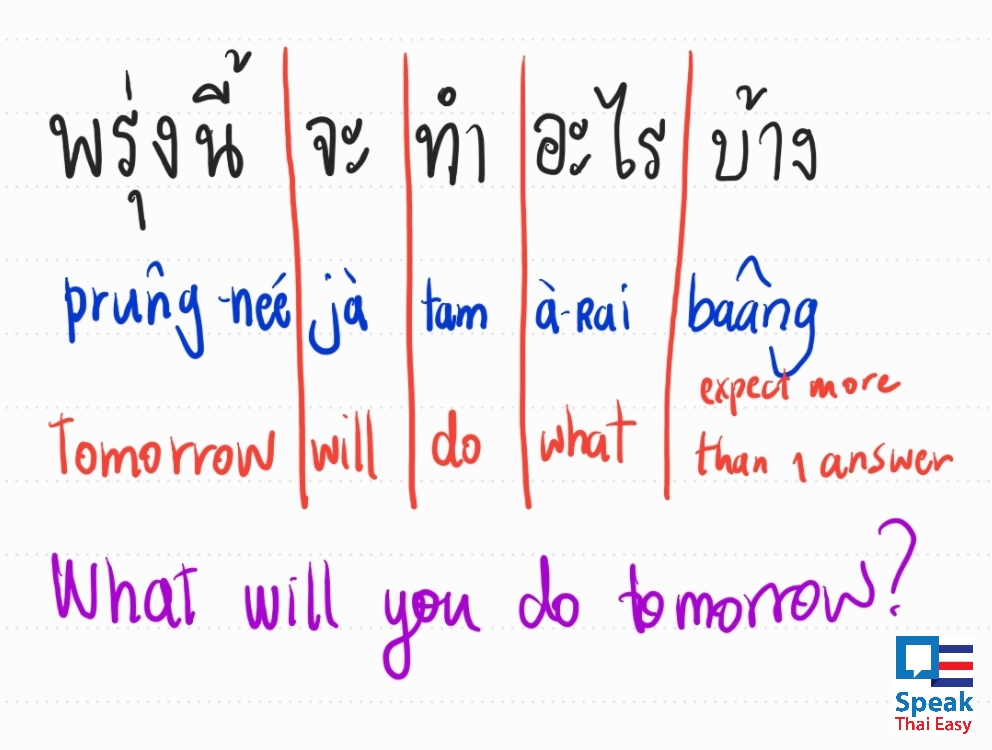 พรุ่งนี้ จะ ทำ อะไร บ้าง
prûng-née jà tam à-Rai baâng
expect more
Tomorrow will do what than 1 answer
What will you do tomorrow?
Speak
Thai Easy